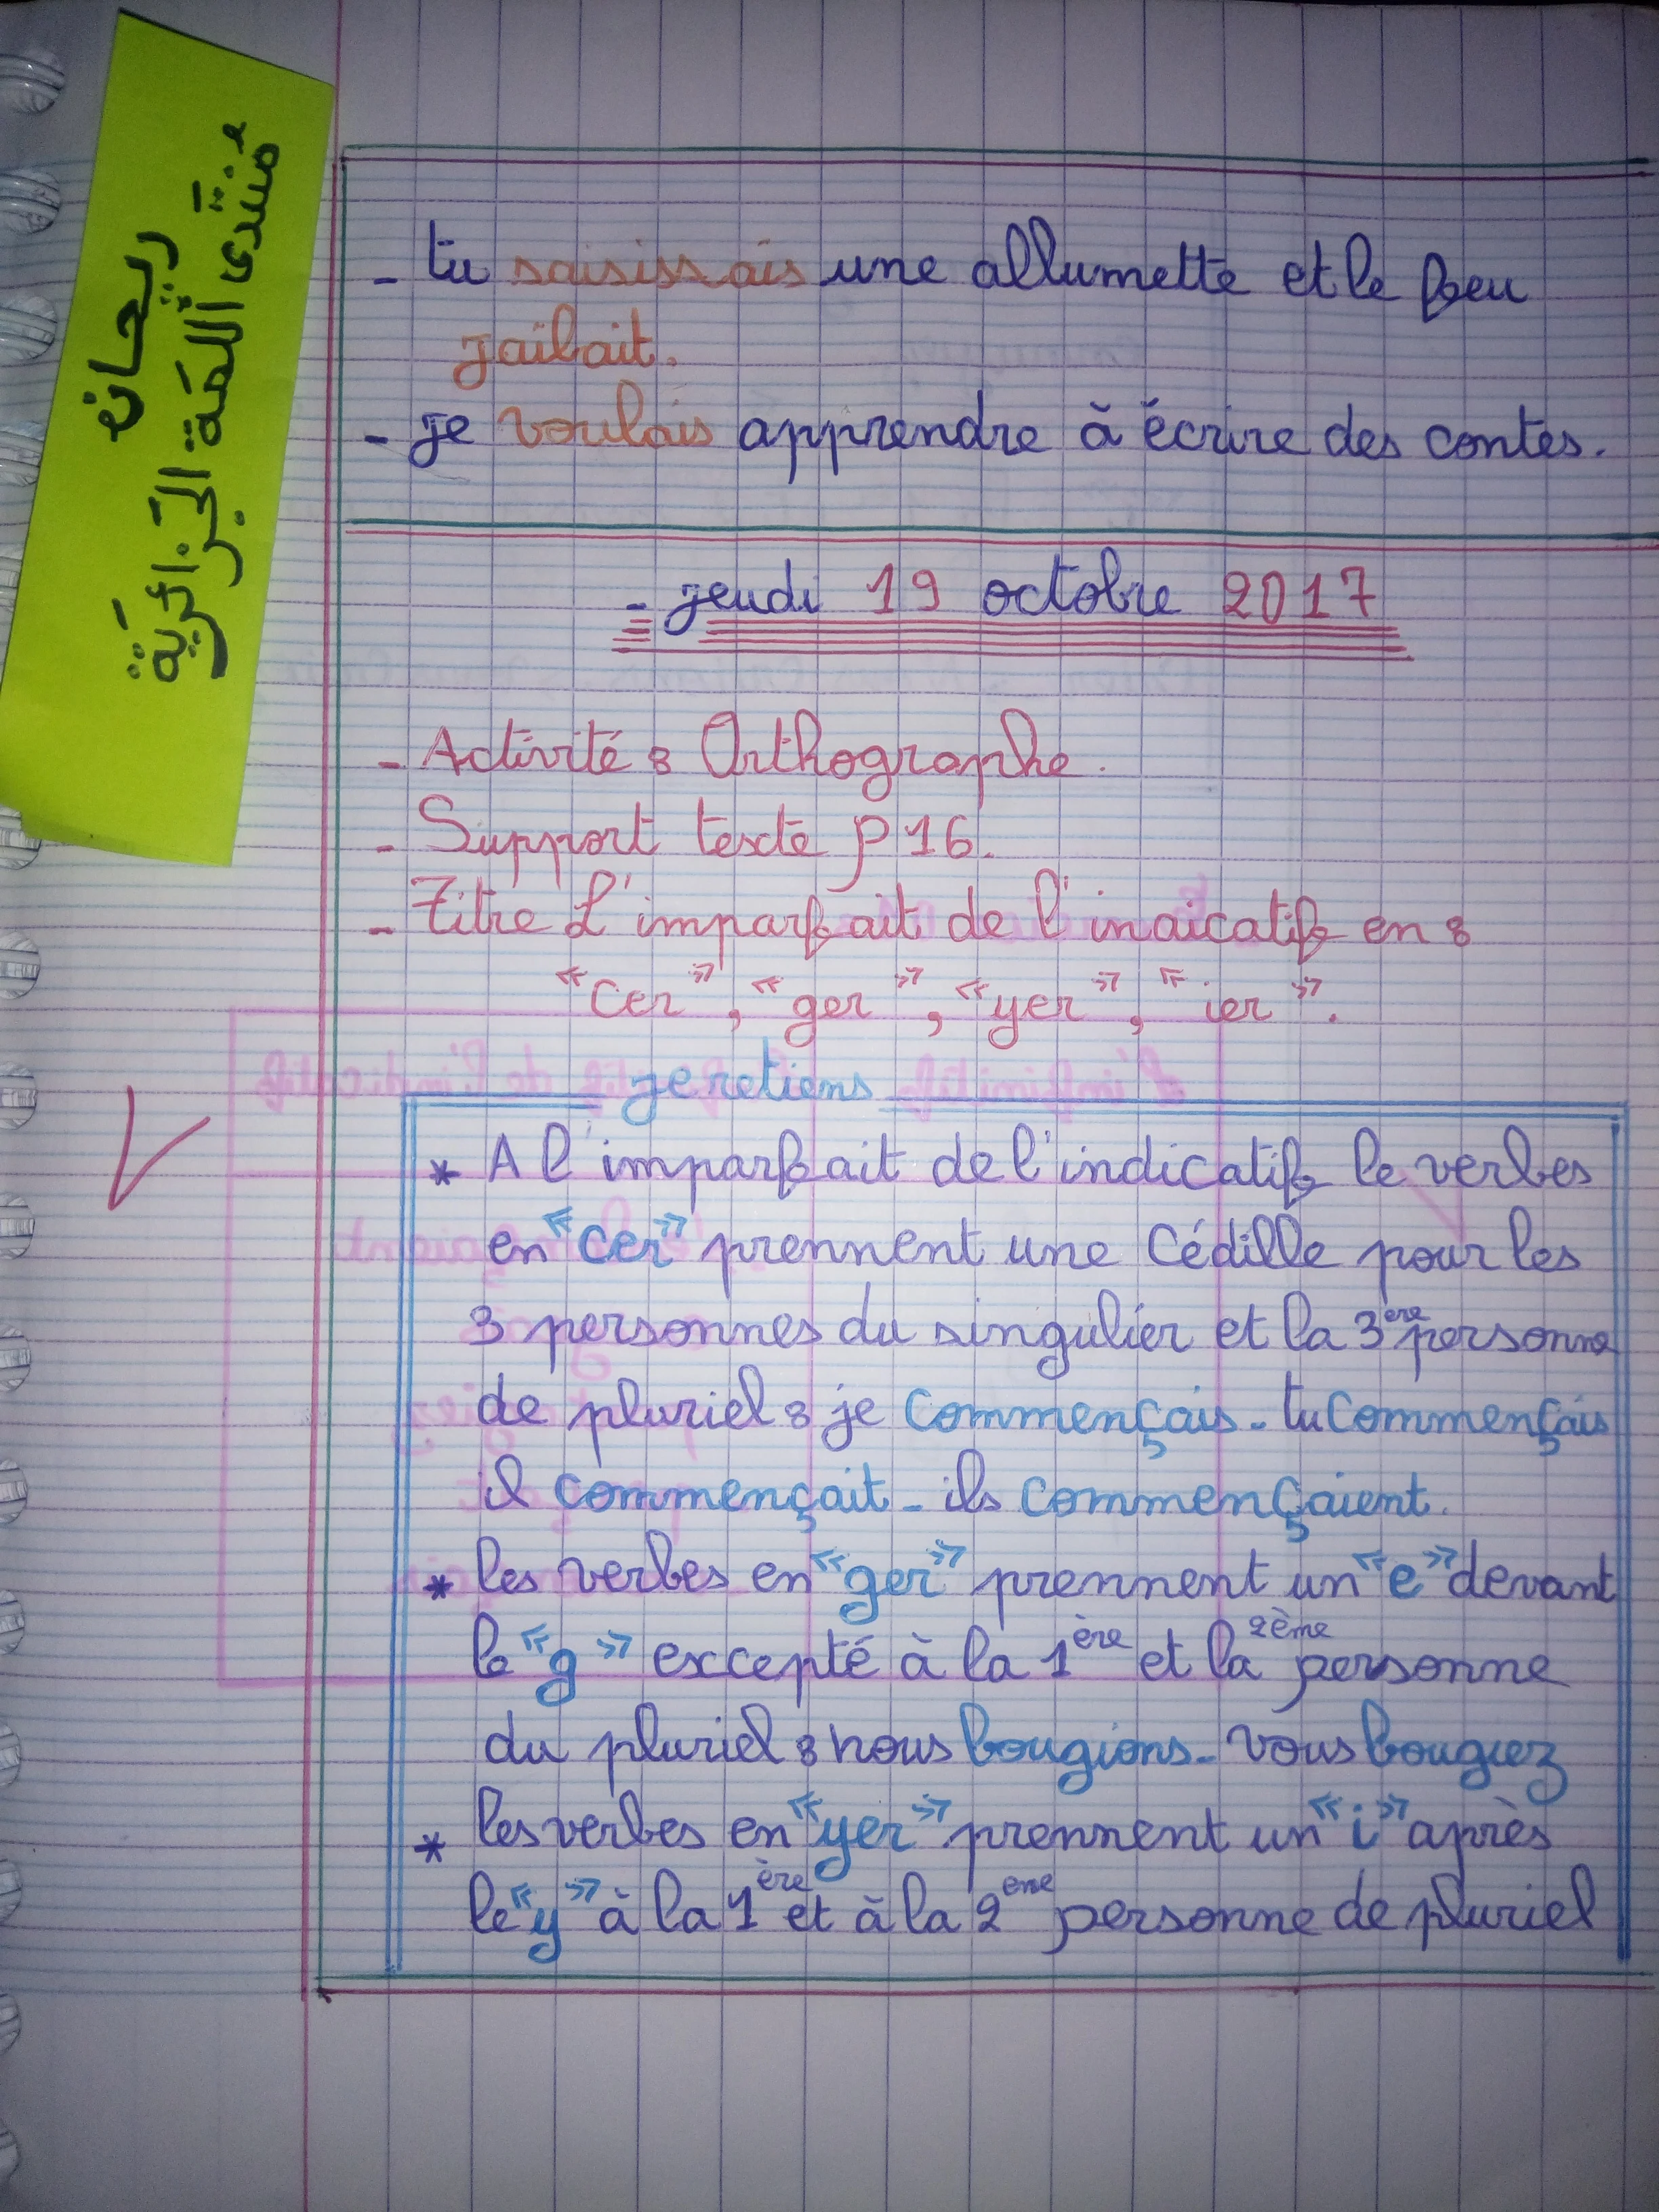 ريحانة
منتدى اللمة الجزائرية
- tu saisissais une allumette et le feu
jaibait.
- je voulais apprendre à écrire des contes.
- jeudi 19 octobre 2017
- Activité : Orthographe.
- Support texte p 16.
- Titre L'imparfait de l'inaicatif en :
"cer", "ger", "yer", "ier".
je retiens
* A l'imparfait de l'indicatif le verbes
en "cer" prennent une Cédille pour les
3 personnes du singulier et la 3ère personne
de pluriel : je commençais - tu commençais
il commençait - ils commençaient.
* les verbes en "ger" prennent un "e" devant
le "g" excepté à la 1ère et la 2ème personne
du pluriel : nous bougions - vous bougiez
* les verbes en "yer" prennent un "i" après
le "y" à la 1ère et à la 2ème personne de pluriel